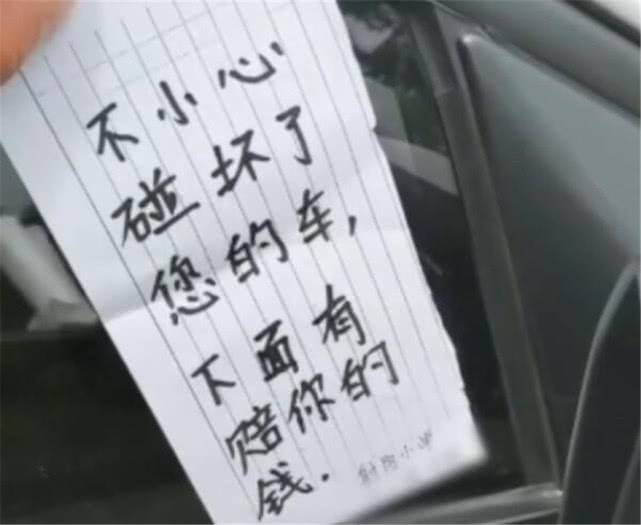 不小心
碰坏了
您的车，
下面有
赔你的
钱.